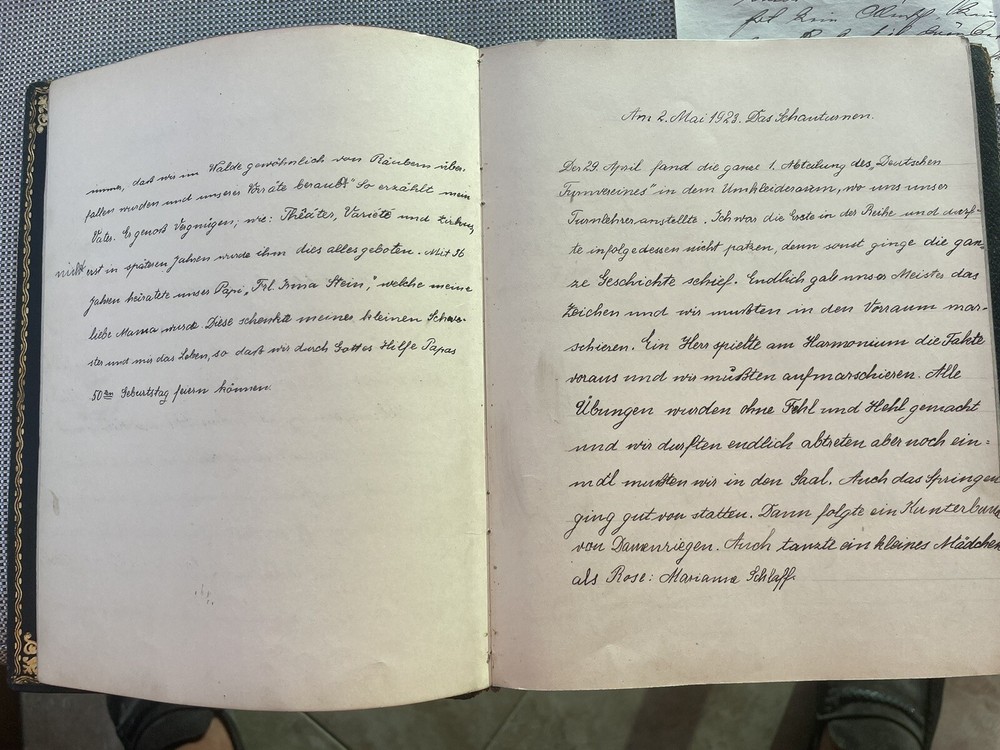 immer, daß wir im Walde gewöhnlich von Räubern über-
fallen wurden und unserer Vorräte beraubt." So erzählt mein
Vater. Er genoß Vergnügen, wie: Théâter, Varieté und Zirkus
nicht erst in späteren Jahren wurde ihm dies alles geboten. Mit 36
Jahren heiratete unser Papi „Frl. Irma Stein", welche meine
liebe Mama wurde. Diese schenkte meiner kleinen Schwe-
ster und mir das Leben, so daß wir durch Gottes Hilfe Papas
50ten Geburtstag feiern können.
Am 2. Mai 1923. Das Schauturnen.
Der 29. April fand die ganze 1. Abteilung des „Deutschen
Turnvereines" in dem Umkleideraum, wo uns unser
Turnlehrer anstellte. Ich war die Erste in der Reihe und durf-
te infolgedessen nicht patzen, denn sonst ginge die gan-
ze Geschichte schief. Endlich gab unser Meister das
Zeichen und wir mußten in den Vorraum mar-
schieren. Ein Herr spielte am Harmonium die Takte
voraus und wir mußten aufmarschieren. Alle
Übungen wurden ohne Fehl und Hehl gemacht
und wir durften endlich abtreten aber noch ein=
mal mußten wir in den Saal. Auch das Springen
ging gut von statten. Dann folgte ein Kunterbunt
von Damenriegen. Auch tanzte ein kleines Mädchen
als Rose: Marianne Schlaff.